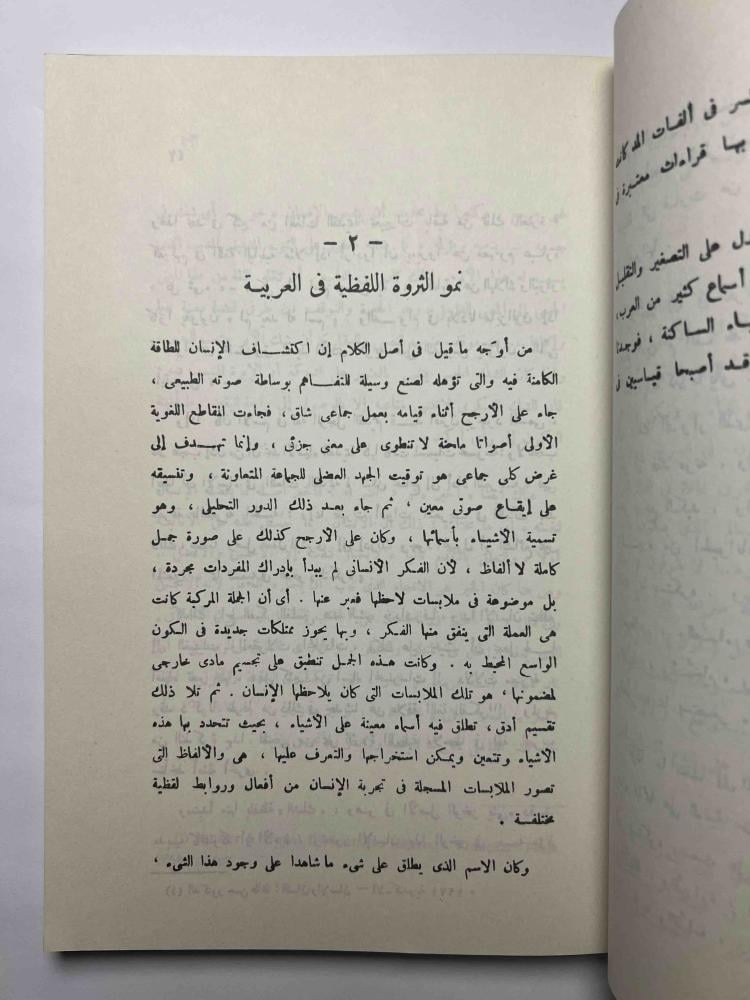 — ٢ —
نمو الثروة اللفظية فى العربيـة
من أوجه ما قيل فى أصل الكلام إن اكتشاف الإنسان للطاقة
الكامنة فيه والتى تؤهله لصنع وسيلة للتفاهم بوساطة صوته الطبيعى ،
جاء على الأرجح أثناء قيامه بعمل جماعى شاق ، فجاءت المقاطع اللغوية
الأولى أصواتا ملحنة لا تنطوى على معنى جزئى ، وإنما تهدف إلى
غرض كلى جماعى هو توقيت الجهد العضلى للجماعة المتعاونة ، وتنسيقه
على إيقاع صوتى معين ، ثم جاء بعد ذلك الدور التحليلى ، وهو
تسمية الأشياء بأسمائها ، وكان على الأرجح كذلك على صورة جمل
كاملة لا ألفاظ ، لأن الفكر الانسانى لم يبدأ بإدراك المفردات مجردة ،
بل موضوعة فى ملابسات لاحظها فعبر عنها . أى أن الجملة المركبة كانت
هى العملة التى ينفق منها الفكر ، وبها يحوز ممتلكات جديدة فى الكون
الواسع المحيط به . وكانت هذه الجمل تنطبق على تجسيم مادى خارجى
لمضمونها ، هو تلك الملابسات التى كان يلاحظها الإنسان . ثم تلا ذلك
تقسيم أدق ، تطلق فيه أسماء معينة على الأشياء ، بحيث تتحدد بها هذه
الأشياء وتتعين ويمكن استخراجها والتعرف عليها ، هى والألفاظ التى
تصور الملابسات المسجلة فى تجربة الإنسان من أفعال وروابط لفظية
مختلفـة .
وكان الاسم الذى يطلق على شىء ما شاهدا على وجود هذا الشىء ،
فى ألفات المد كانت
بها قراءات معتبرة فى
على التصغير والتقليل
أسماع كثير من العرب ،
الساكنة ، فوجدنا
قد أصبحا قياسيين فى